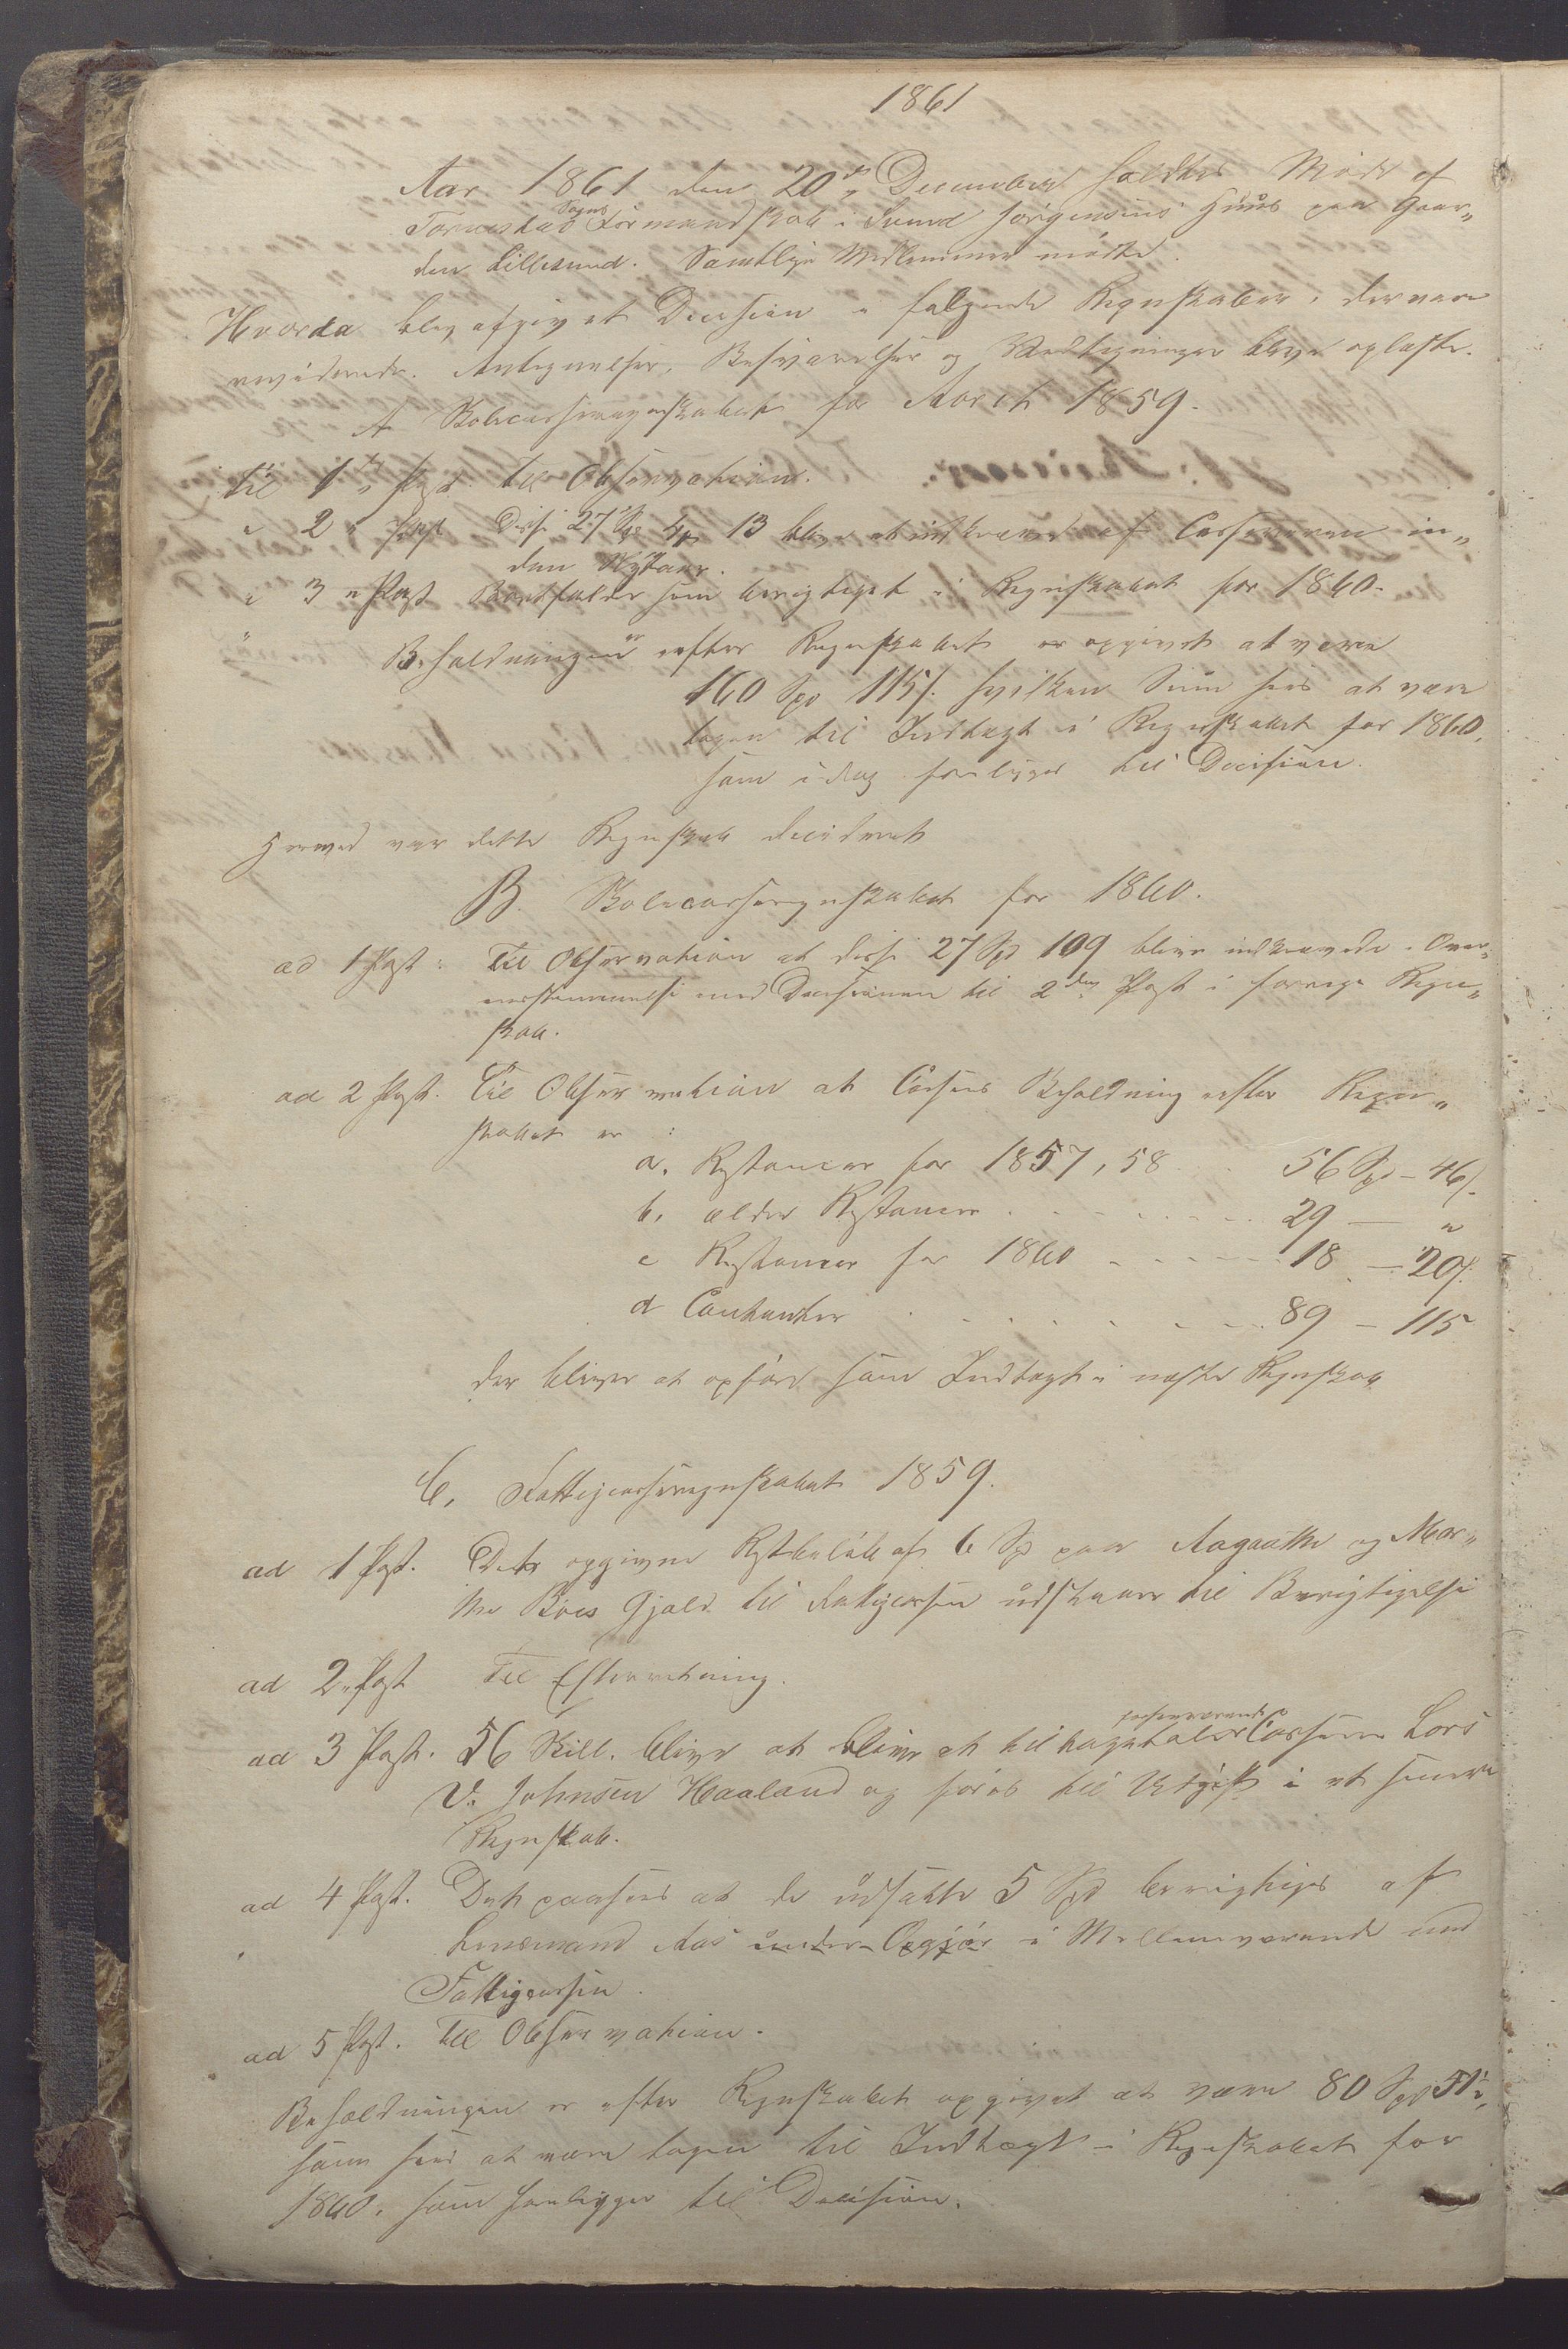 1861
Aar 1861 den 20de December holdtes Møde af
Torvestad Sogns Formandskab i Svend Jørgensens Huus paa Gaar„
den Lillesund. Samtlige Medlemmer mødte.
Hvorda blev afgivet Decision i følgende Regnskaber, der vare
reviderede. Antegnelser, Besvarelser og Paategninger bleve oplæste.
A Skolecasseregnskabet for Aaret 1859.
Til 1ste Post. Til Observation.
" 2 " Post Disse 27 Spd 13 blive at indkræve af Cassereren in„
den Nytaar.
" 3 " Post Bortfalder som berigtiget i Regnskabet for 1860.
" Beholdningen er efter Regnskabet er opgivet at være
160 Spd 115 s. hvilken Sum sees at være
tagen til Indtægt i Regnskabet for 1860,
som i dag foreligger til Decision.
Hermed var dette Regnskab decideret
B. Skolecasseregnskabet for 1860.
ad 1 Post: Til Observation at disse 27 Spd 109 blive indkrævede i Over„
eensstemmelse med Decisionen til 2den Post i forrige Regn„
skab.
ad 2 Post. Til Observation at Cassens Beholdning efter Regn„
skabet er :
a. Restancer for 1857, 58 . . 56 Spd – 46 s.
b. ældre Restancer . . . . . . 29 — "
c Restancer for 1860 . . . . . 18 — 20 s.
d Contanter . . . . . . . 89 – 115
der bliver at opføre som Indtægt i næste Regnskab
C. Fattigcasseregnskabet 1859.
ad 1 Post. Det opgivne Restbeløb af 6 Spd paa Aagaathe og Mar„
the Bøes Gjæld til Fattigcassen udstaaer til Berigtigelse
ad 2 " Post Til Efterretning.
ad 3 Post. 56 Skill. bliver at bliver at tilbagebetale forhenværende Casserer Lars
V. Johnsen Haaland og føres til Udgift i et senere
Regnskab.
ad 4 Post. Det paasees at de udsatte 5 Spd berigtiges af
Lensmand Aas under Opgjør i Mellemværende med
Fattigcassen.
ad 5 Post. Til Observation.
Beholdningen er efter Regnskabet opgivet at være 80 Spd 51 s,
som sees at være tagen til Indtægt i Regnskabet for
1860, som foreligger til Decision.